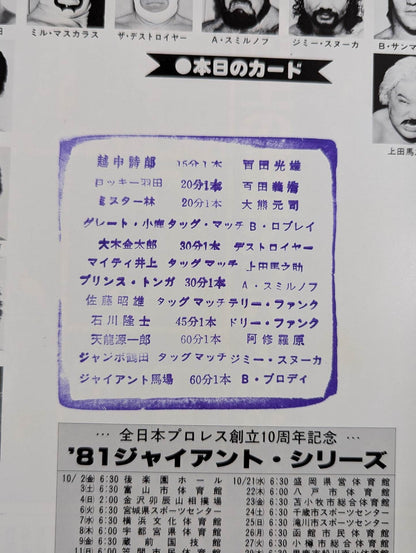 ミル・マスカラス
ザ・デストロイヤー
A・スミルノフ
ジミー・スヌーカ
B・サンマ
上田馬之
●本日のカード
越中詩郎 15分1本 百田光雄
ロッキー羽田 20分1本 百田義浩
ミスター林 20分1本 大熊元司
グレート・小鹿 タッグ・マッチ B・ロブレイ
大木金太郎 30分1本 デストロイヤー
マイティ井上 タッグマッチ 上田馬之助
プリンス・トンガ 30分1本 A・スミルノフ
佐藤昭雄 タッグマッチ テリー・ファンク
石川隆士 45分1本 ドリー・ファンク
天龍源一郎 60分1本 阿修羅原
ジャンボ鶴田 タッグマッチ ジミー・スヌーカ
ジャイアント馬場 60分1本 B・ブロディ
… 全日本プロレス創立10周年記念 …
'81ジャイアント・シリーズ
10/2㊎ 6:30 後楽園ホール
3㊏ 6:30 富山市体育館
4㊐ 2:00 金沢卯辰山相撲場
6㊋ 6:30 宮城県スポーツセンター
7㊌ 6:30 横浜文化体育館
8㊍ 6:30 宇都宮県体育館
9㊎ 6:30 蔵前国技館
11㊐ 6:00 笠間市民体育館
10/21㊌ 6:30 盛岡県営体育館
22㊍ 6:00 八戸市体育館
23㊎ 6:30 苫小牧市総合体育館
24㊏ 6:30 千歳市スポーツセンター
25㊐ 6:30 滝川市スポーツセンター
26㊊ 6:30 函館市民体育館
27㊋ 6:30 小樽市総合体育館